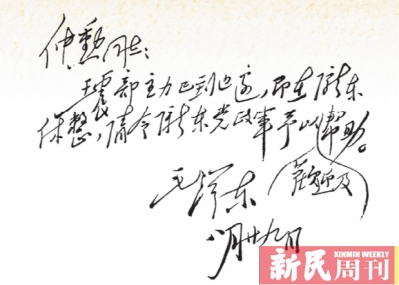 仲勳同志：
王震部主力已到边区，即在陇东
休整，请令陇东党政军予以帮助。
欢迎及
毛泽东
八月廿九日
XINMIN WEEKLY
新民周刊